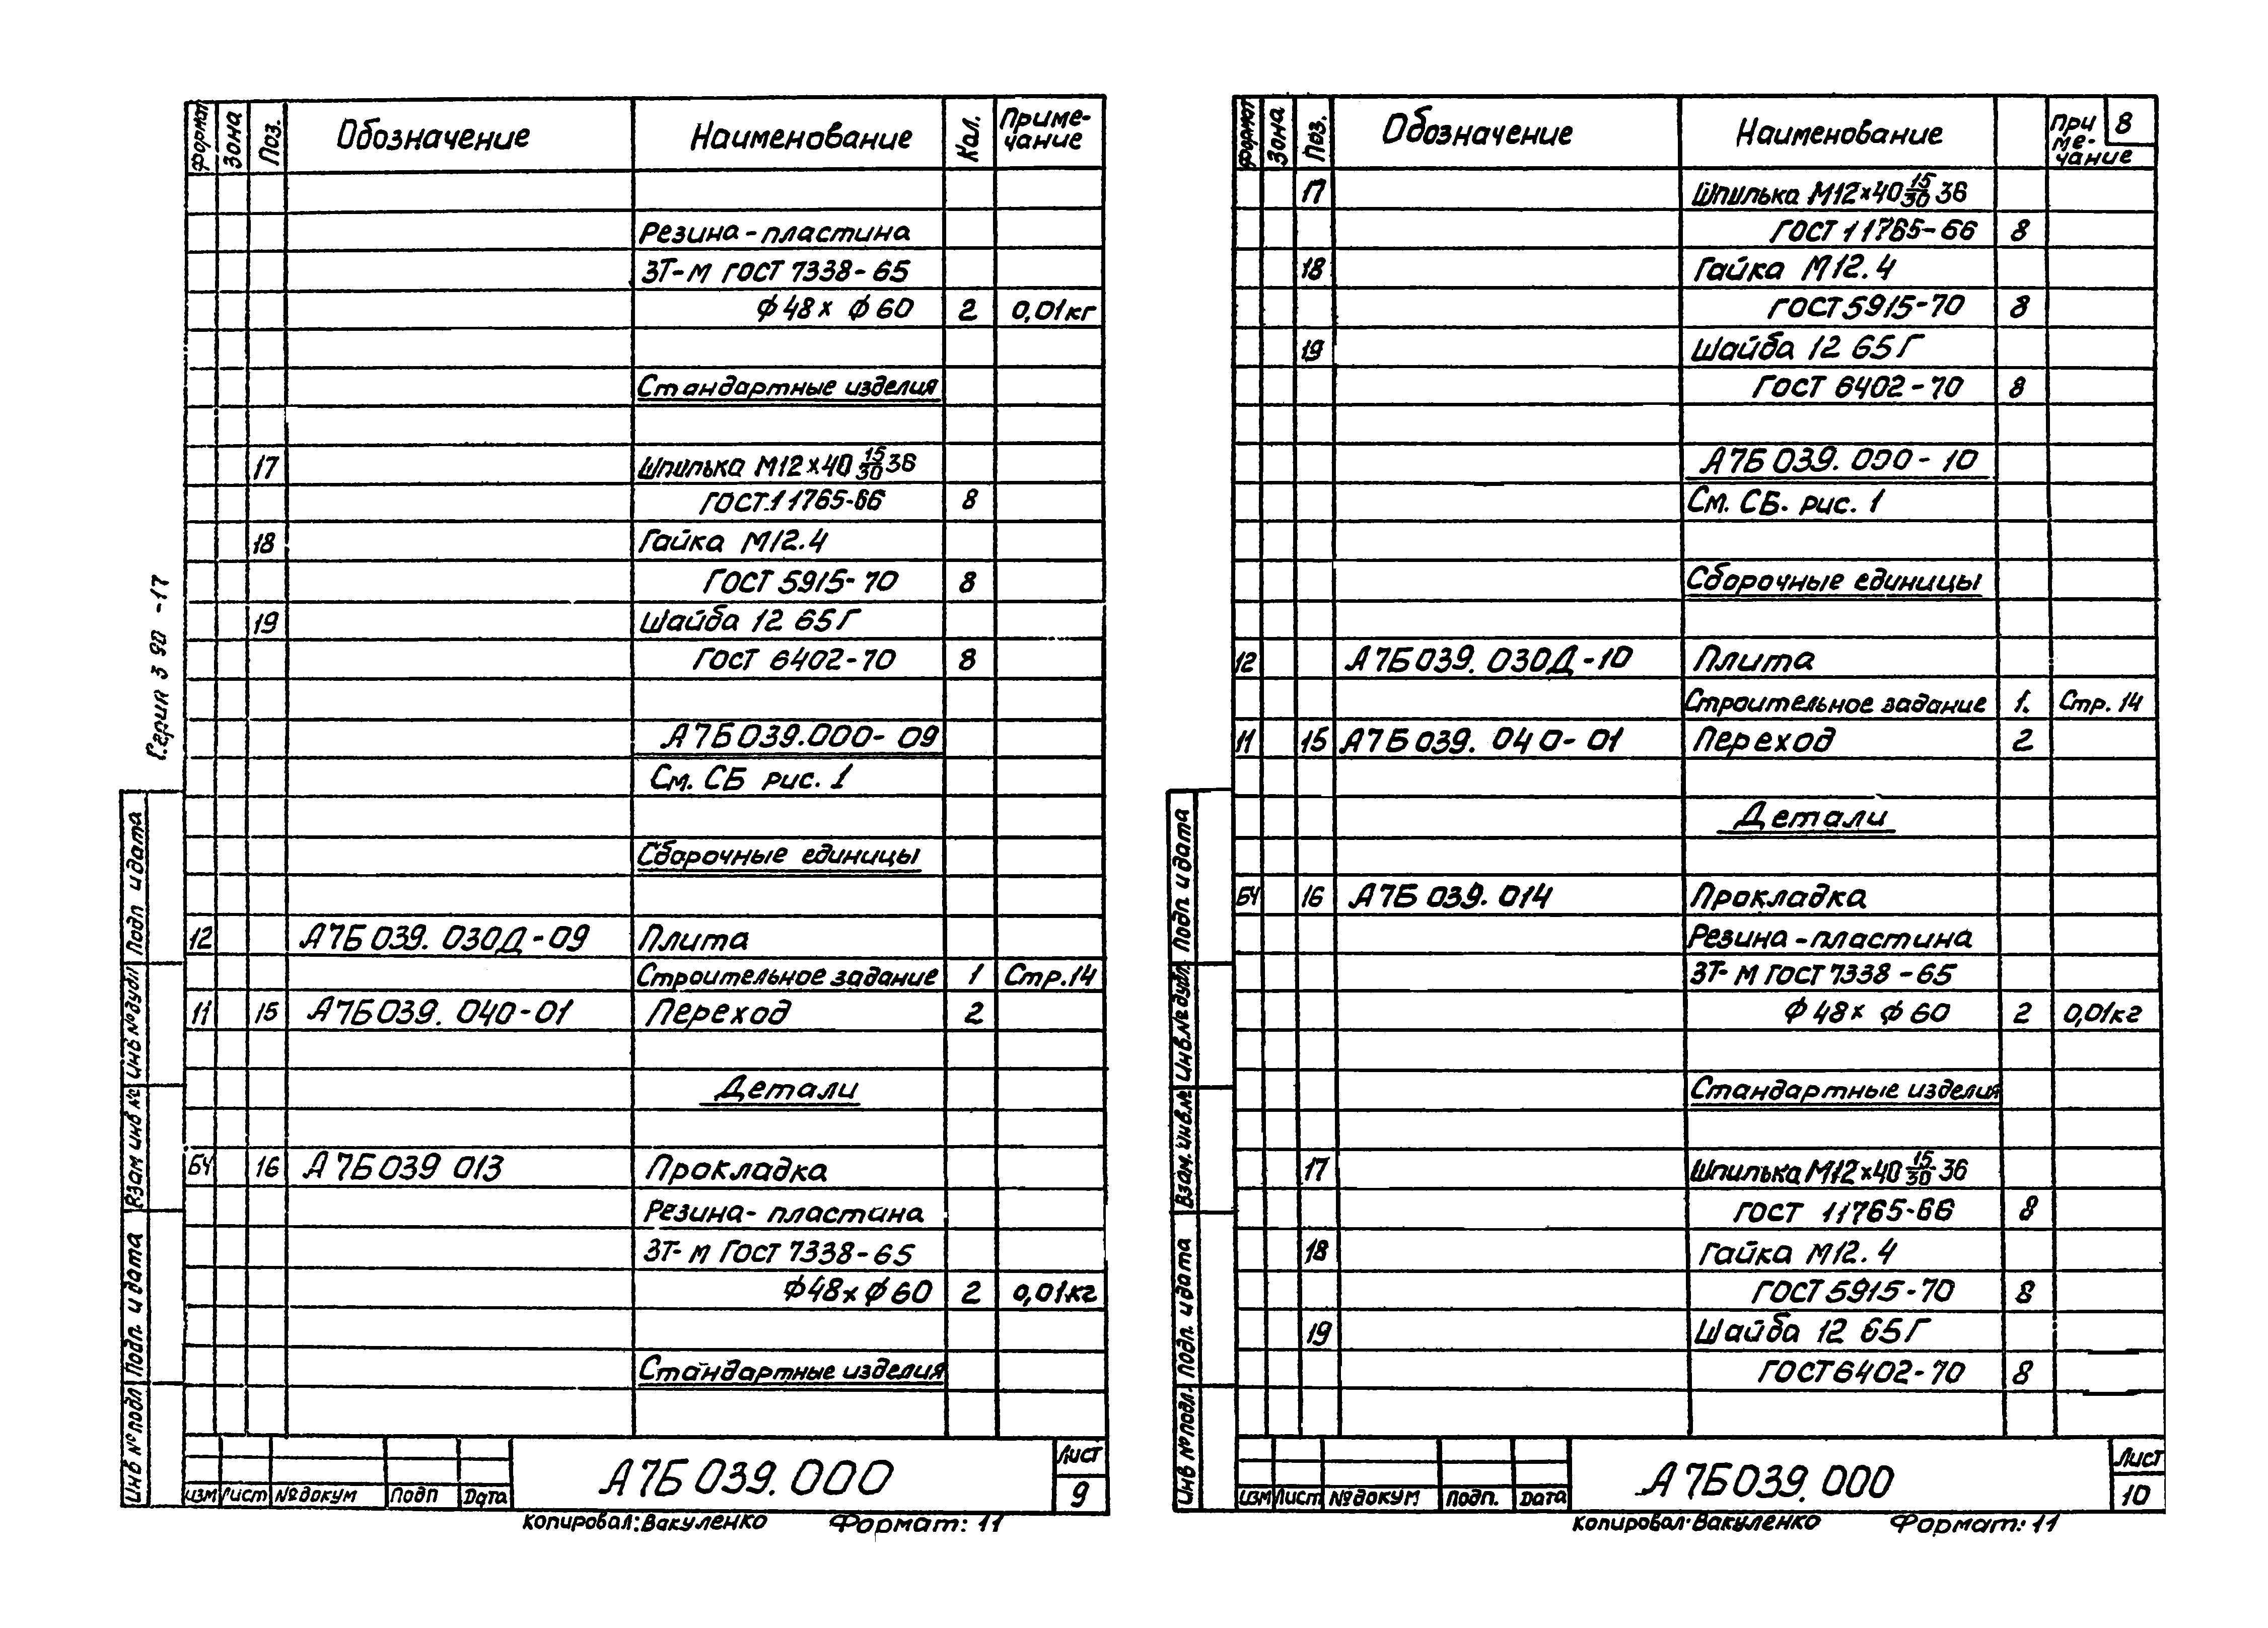 Формат Зона Поз. Обозначение Наименование Кол. Приме-
чание
Резина-пластина
3Т-м ГОСТ 7338-65
ф48х ф60 2 0,01кг
Стандартные изделия
17 Шпилька М12х40 15/30 36
ГОСТ 11765-66 8
18 Гайка М12.4
ГОСТ 5915-70 8
19 Шайба 12 65Г
ГОСТ 6402-70 8
А7Б039.000-09
См. СБ рис. 1
Сборочные единицы
12 А7Б039.030Д-09 Плита
Строительное задание 1 Стр.14
11 15 А7Б039.040-01 Переход 2
Детали
БЧ 16 А7Б039 013 Прокладка
Резина-пластина
3Т-м ГОСТ 7338-65
ф48х ф60 2 0,01кг
Стандартные изделия
Серия 3 90 -17
Подп и дата
Инв №дубл
Взам инв №
Подп. и дата
Инв №подл
Изм Лист №докум Подп Дата
А7Б039.000
Лист
9
Копировал: Вакуленко Формат: 11
Формат Зона Поз. Обозначение Наименование При
ме-
чание
8
17 Шпилька М12х40 15/30 36
ГОСТ 11765-66 8
18 Гайка М12.4
ГОСТ 5915-70 8
19 Шайба 12 65Г
ГОСТ 6402-70 8
А7Б039.000-10
См. СБ. рис. 1
Сборочные единицы
12 А7Б039.030Д-10 Плита
Строительное задание 1. Стр.14
11 15 А7Б039.040-01 Переход 2
Детали
БЧ 16 А7Б039.014 Прокладка
Резина-пластина
3Т-м ГОСТ 7338-65
ф48х ф60 2 0,01кг
Стандартные изделия
17 Шпилька М12х40 15/30 36
ГОСТ 11765-66 8
18 Гайка М12.4
ГОСТ 5915-70 8
19 Шайба 12 65Г
ГОСТ 6402-70 8
Подп. и дата
Инв.№ дубл.
Взам. инв.№
Подп. и дата
Инв №подл.
Изм Лист №докум Подп. Дата
А7Б039.000
Лист
10
Копировал: Вакуленко Формат: 11